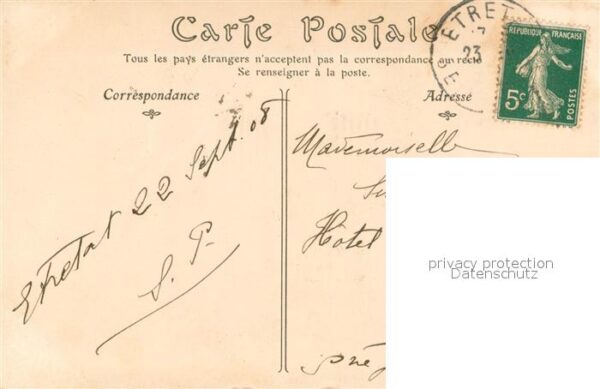 Carte Postale
Tous les pays étrangers n'acceptent pas la correspondance au recto
Se renseigner à la poste.
Correspondance
Adresse
ETRET
23
RÉPUBLIQUE FRANÇAISE
5c
POSTES
Etretat 22 Sept. 08
S. P.
Mademoiselle
Hôtel
privacy protection
Datenschutz